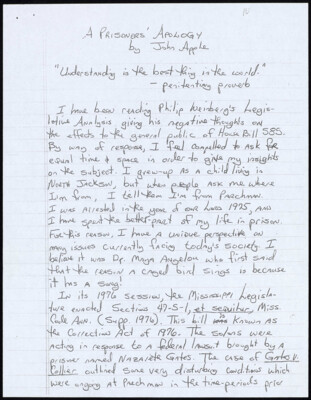 A PRISONERS' APOLOGY
by John Apple
"Understanding is the best thing in the world."
- penitentiary proverb
I have been reading Philip Weinberg's Legis-
lative Analysis giving his negative thoughts on
the effects to the general public of House Bill 585.
By way of response, I feel compelled to ask for
equal time & space in order to give my insights
on the subject. I grew-up as a child living in
North Jackson, but when people ask me where
I'm from, I tell them I'm from Parchman.
I was arrested in the year of our Lord 1975, and
I have spent the better part of my life in prison.
For this reason, I have a unique perspective on
many issues currently facing today's society. I
believe it was Dr. Maya Angelou who first said
that the reason a caged bird sings is because
it has a song.
In its 1976 session, the Mississippi Legisla-
ture enacted Section 47-5-1, et sequitur, Miss.
Code Ann. (Supp. 1976). This bill is known as
the Correction Act of 1976. The solons were
acting in response to a federal lawsuit brought by a
prisoner named Nazareth Gates. The case of Gates v.
Collier outlined some very disturbing conditions which
were ongoing at Parchman in the time-periods prior